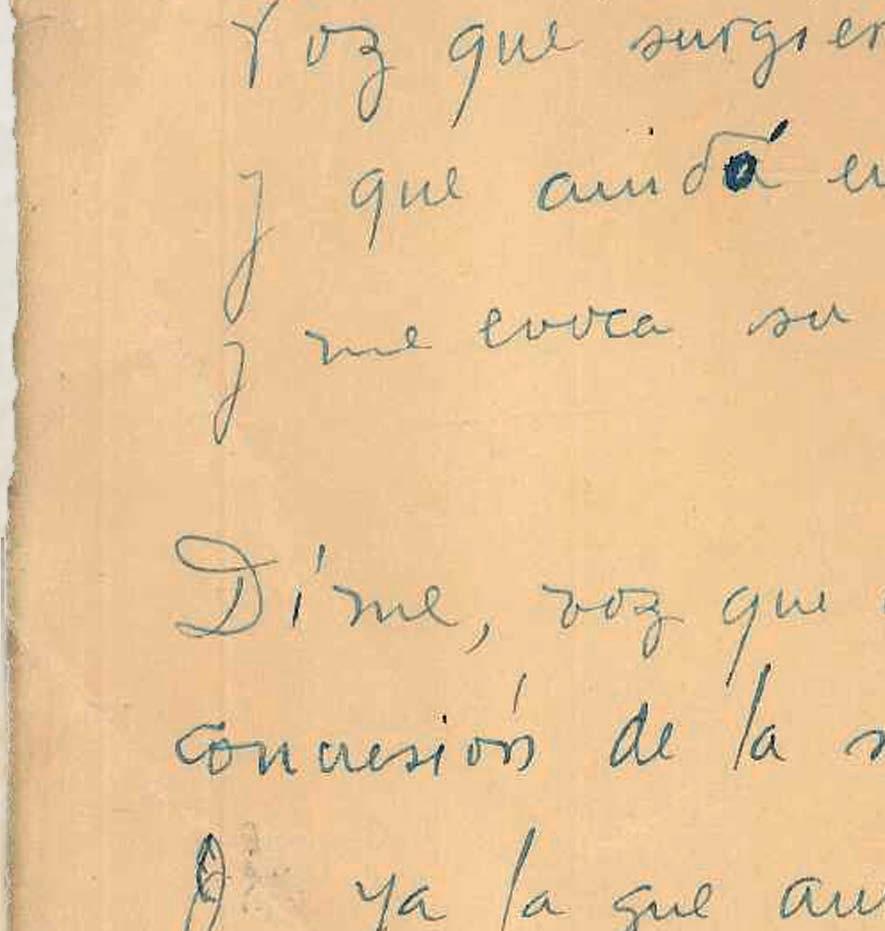 Voz que surgier
y que anidó en
y me evoca su
Díme, voz que
concresión de la
ya la que